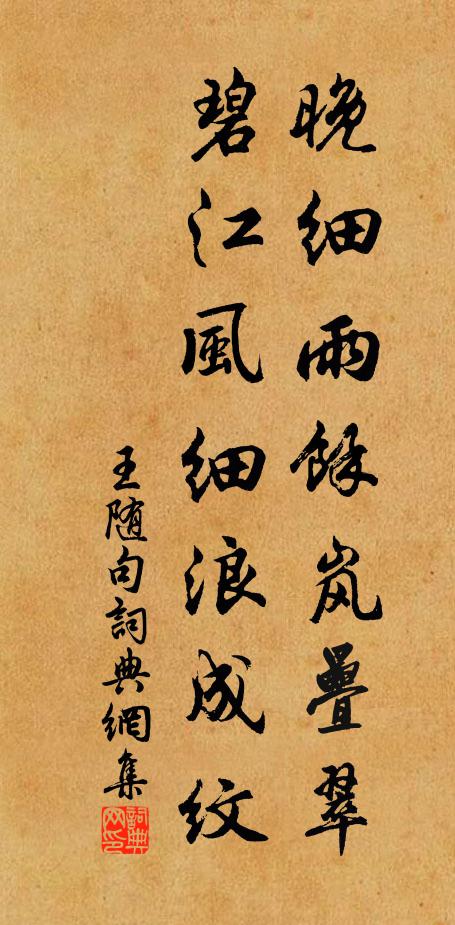 晚细雨餘岚疊翠
碧江風细浪成纹
王随句詞典網集
詞典网印